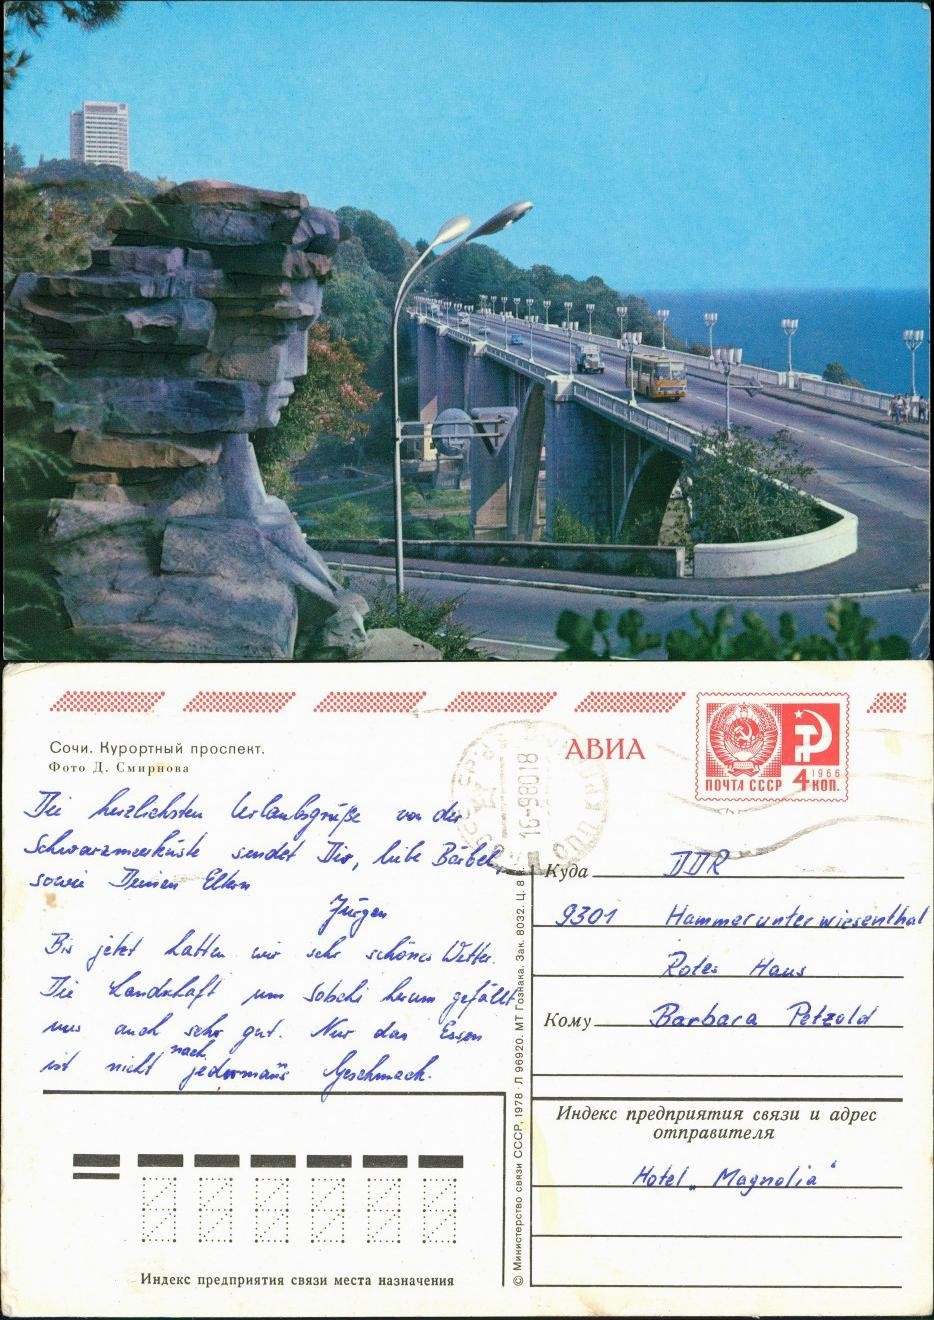 Сочи. Курортный проспект.
Фото Д. Смирнова
АВИА
ПОЧТА СССР
1966
4 КОП.
Die herzlichsten Urlaubsgrüße von der
Schwarzmeerküste sendet Dir, liebe Bärbel,
sowie Deinen Eltern
Jürgen
Bis jetzt hatten wir sehr schönes Wetter.
Die Landschaft um Sotschi herum gefällt
uns auch sehr gut. Nur das Essen
ist nicht nach jedermanns Geschmack.
Куда DDR
9301 Hammerunterwiesenthal
Rotes Haus
Кому Barbara Petzold
Индекс предприятия связи и адрес
отправителя
Hotel „Magnolia“
Индекс предприятия связи места назначения
© Министерство связи СССР, 1978. Л 96920. МТ Гознака. Зак. 8032. Ц. 8